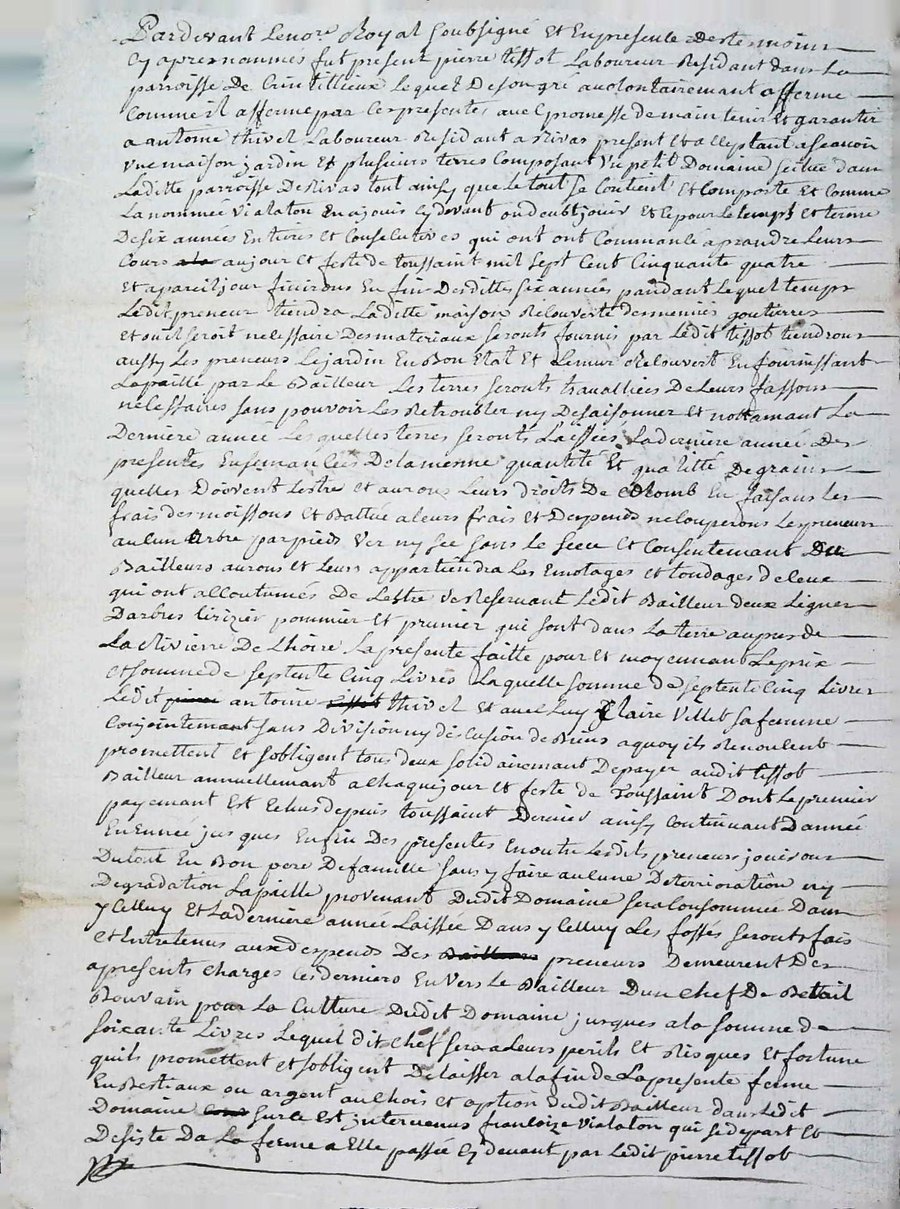 Pardevant Lenore Royal Soubsigné Et En presence des temoins
Cy apres nommés fut present pierre tissot Laboureur Residant dans La
parroisse De Crintillieux Lequel De son gré auolontairemant afferme
Comme il afferme par Ces presentes auec promesse de maintenir Et garantir
a antoine thivel Laboureur Residant a Rivas present Et acceptant a scauoir
Vne maison jardin Et plusieurs terres Composant Vn petit Domaine scitué dans
Laditte parroisse De Rivas tout ainsy que Le tout Se Contient Et Comporte Et Comme
La nommée Vialaton En a jouis Cy devant ou deubt jouir Et Ce pour Le temps Et terme
De six années Entieres Et ConseCutives qui ont ont Commancé a prandre Leurs
Cours aujour Et feste de toussaint mil sept Cent Cinquante quatre
Et apareil jour finirons En fin Desdittes six années pandant Lequel temps
Ledit preneur tiendra Laditte maison Recouverte desmenües goutieres
Et ou il seroit neCessaire Des materiaux seronts fournis par Ledit tissot tiendrons
aussy Les preneurs Le jardin En Bon Etat Et Le mur Recouvert En fournissant
La paille par Le Bailleur Les terres seronts trauaillées De Leurs fassons
neCessaires sans pouvoir Les Retroubler ny Desaisonner Et nottamant La
Derniere année Les quelles terres seronts Laissées La derniere année Des
presentes Ensemancées De la mesme quantité Et qualitté De grains
quelles Doivent Lestre Et aurons Leurs droits De Colomb En faisans Les
frais des moissons Et Battüe a leurs frais Et Despends ne Couperons Les preneurs
auCun Arbre par pieds Ver ny sec sans Le sceu Et Consentemant Du
Bailleurs aurons Et Leurs appartiendra Les Emotages Et tondages de Ceux
qui ont acCoutumés De Lestre se Reservant Ledit Bailleur deux Lignes
Darbres Cirizier pommier Et prunier qui sont dans La terre aupres de
La Riviere De Lhoire La presente faitte pour Et moyennant Le prix
Et somme de septente Cinq Livres Laquelle somme de septente Cinq Livres
Ledit antoine thivel Et auec Luy Claire Villet sa femme
Conjointemant sans Division ny disCusion de Biens a quoy ils Renoncent
promettent Et sobligent tous deux solidairemant De payer audit tissot
Bailleur annuellemant a Chaque jour Et feste de Toussaint Dont Le premier
payemant Est Echus depuis toussaint Dernier ainsy Continuant Dannée
En Ennée jusques En fin Des presentes En outre Lesdits preneurs jouirons
Du tout En Bon pere De famille sans y faire auCune Deterrioration ny
Degradation La paille provenant Dudit Domaine sera Consommée Dans
yCelluy Et La derniere année Laissée Dans yCelluy Les fossés seronts fais
Et Entretenus aux despends Des preneurs Demeurent Des
apresents Chargés Ces derniers En Vers Le Bailleur Dun Chef De Betail
Bouvain pour La Culture Dudit Domaine jusques a la somme de
soixante Livres Lequel dit Chef sera a Leurs perils Et Risques Et fortune
quils promettent Et sobligent De laisser a la fin de La presente ferme
En Bestiaux ou argent au Choix Et option Dudit Bailleur dans Ledit
Domaine sur Ce Est jntervenus francoize Vialaton qui se depart Et
Desiste Da La ferme a Elle passée Cy devant par Ledit pierre tissot